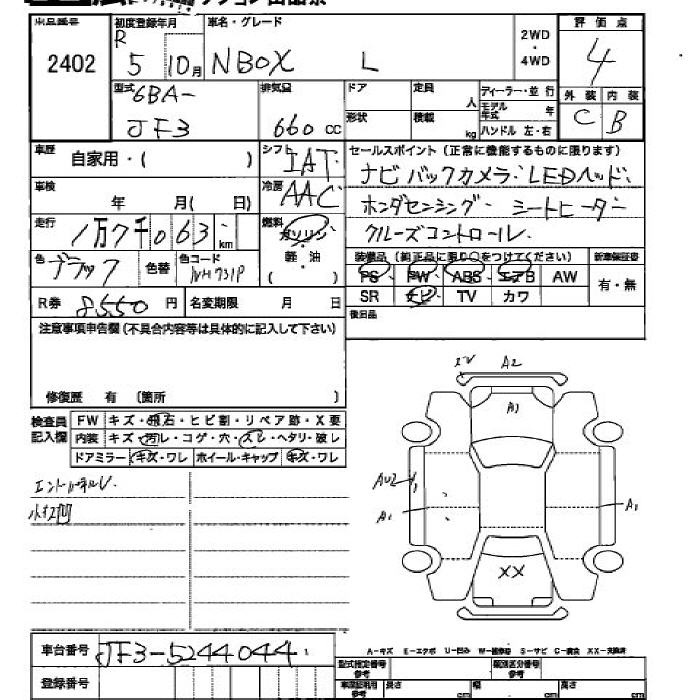 出品番号 初度登録年月 車名・グレード 2WD・4WD 評価点
2402 R 5 10月 NBOX L 4
型式 6BA- JF3 排気量 660 cc ドア 定員 人 ディーラー・並行
形状 積載 kg モデル年式 年 ハンドル 左・右
外装 内装
C B
車歴 自家用・( ) シフト IAT セールスポイント(正常に機能するものに限ります)
車検 年 月( 日) 冷房 AAC ナビ バックカメラ・LEDヘッド、
走行 1万7千063 km 燃料 ガソリン 軽・油 ( ) ホンダセンシング、シートヒーター
クルーズコントロール、
色 ブラック 色替 色コード NH731P 装備品(純正品に限り○をつけてください) 新車保証書
PS PW ABS エアB AW 有・無
SR ナビ TV カワ
R券 8550 円 名変期限 月 日 後日品
注意事項申告欄(不具合内容等は具体的に記入して下さい)
修復歴 有 (箇所 )
検査員記入欄 FW キズ・飛石・ヒビ割・リペア跡・X要
内装 キズ・汚レ・コゲ・穴・スレ・ヘタリ・破レ
ドアミラー キズ・ワレ ホイール・キャップ キズ・ワレ
小キズ凹
A2
A1
AU2
A1
A1
XX
A-キズ E-エクボ U-凹み W-補修跡 S-サビ C-腐食 XX-交換済
車台番号 JF3-5244044
登録番号
型式指定番号 参考 類別区分番号 参考
車庫証明用 参考 長さ cm 幅 cm 高さ cm